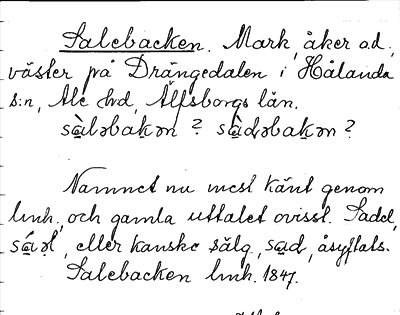 Salebacken. Mark, åker o.d.,
väster på Drängedalen i Hålanda
s:n, Ale hd, Älfsborgs län.
sà̱ləbakən ? sà̱dəbakən ?
Namnet nu mest känt genom
lmh., och gamla uttalet ovisst. Sadel,
sá̱əl, eller kanske sälg, sa̱d, åsyftats.
Salebacken lmh. 1847.